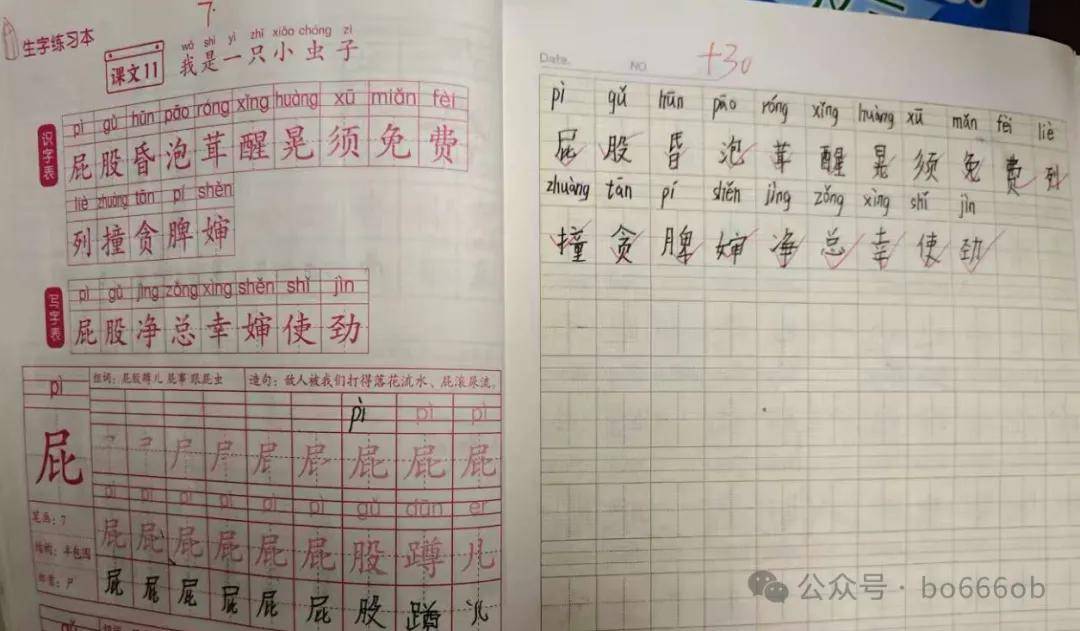 7
生字练习本
wǒ shì yì zhī xiǎo chóng zi
课文11 我是一只小虫子
识字表
pì gǔ hūn pāo róng xǐng huàng xū miǎn fèi
屁股昏泡茸醒晃须免费
liè zhuàng tān pí shěn
列撞贪脾婶
写字表
pì gǔ jìng zǒng xìng shěn shǐ jìn
屁股净总幸婶使劲
pì
屁
组词：屁股蹲儿 屁事 跟屁虫
造句：敌人被我们打得落花流水、屁滚尿流。
pì pì pì
屁 屁 屁
pì pì pì pì pì pì gǔ dūn er
屁 屁 屁 屁 屁 屁 股 蹲 儿
笔画：7
结构：半包围
部首：尸
屁 屁 屁 屁 屁 屁 股 蹲 儿
Date. NO
+30
pì gǔ hūn pāo róng xǐng huàng xū mǎn fèi liè
屁 股 昏 泡 茸 醒 晃 须 免 费 列
zhuàng tān pí shěn jìng zǒng xìng shǐ jìn
撞 贪 脾 婶 净 总 幸 使 劲
公众号 · bo666ob